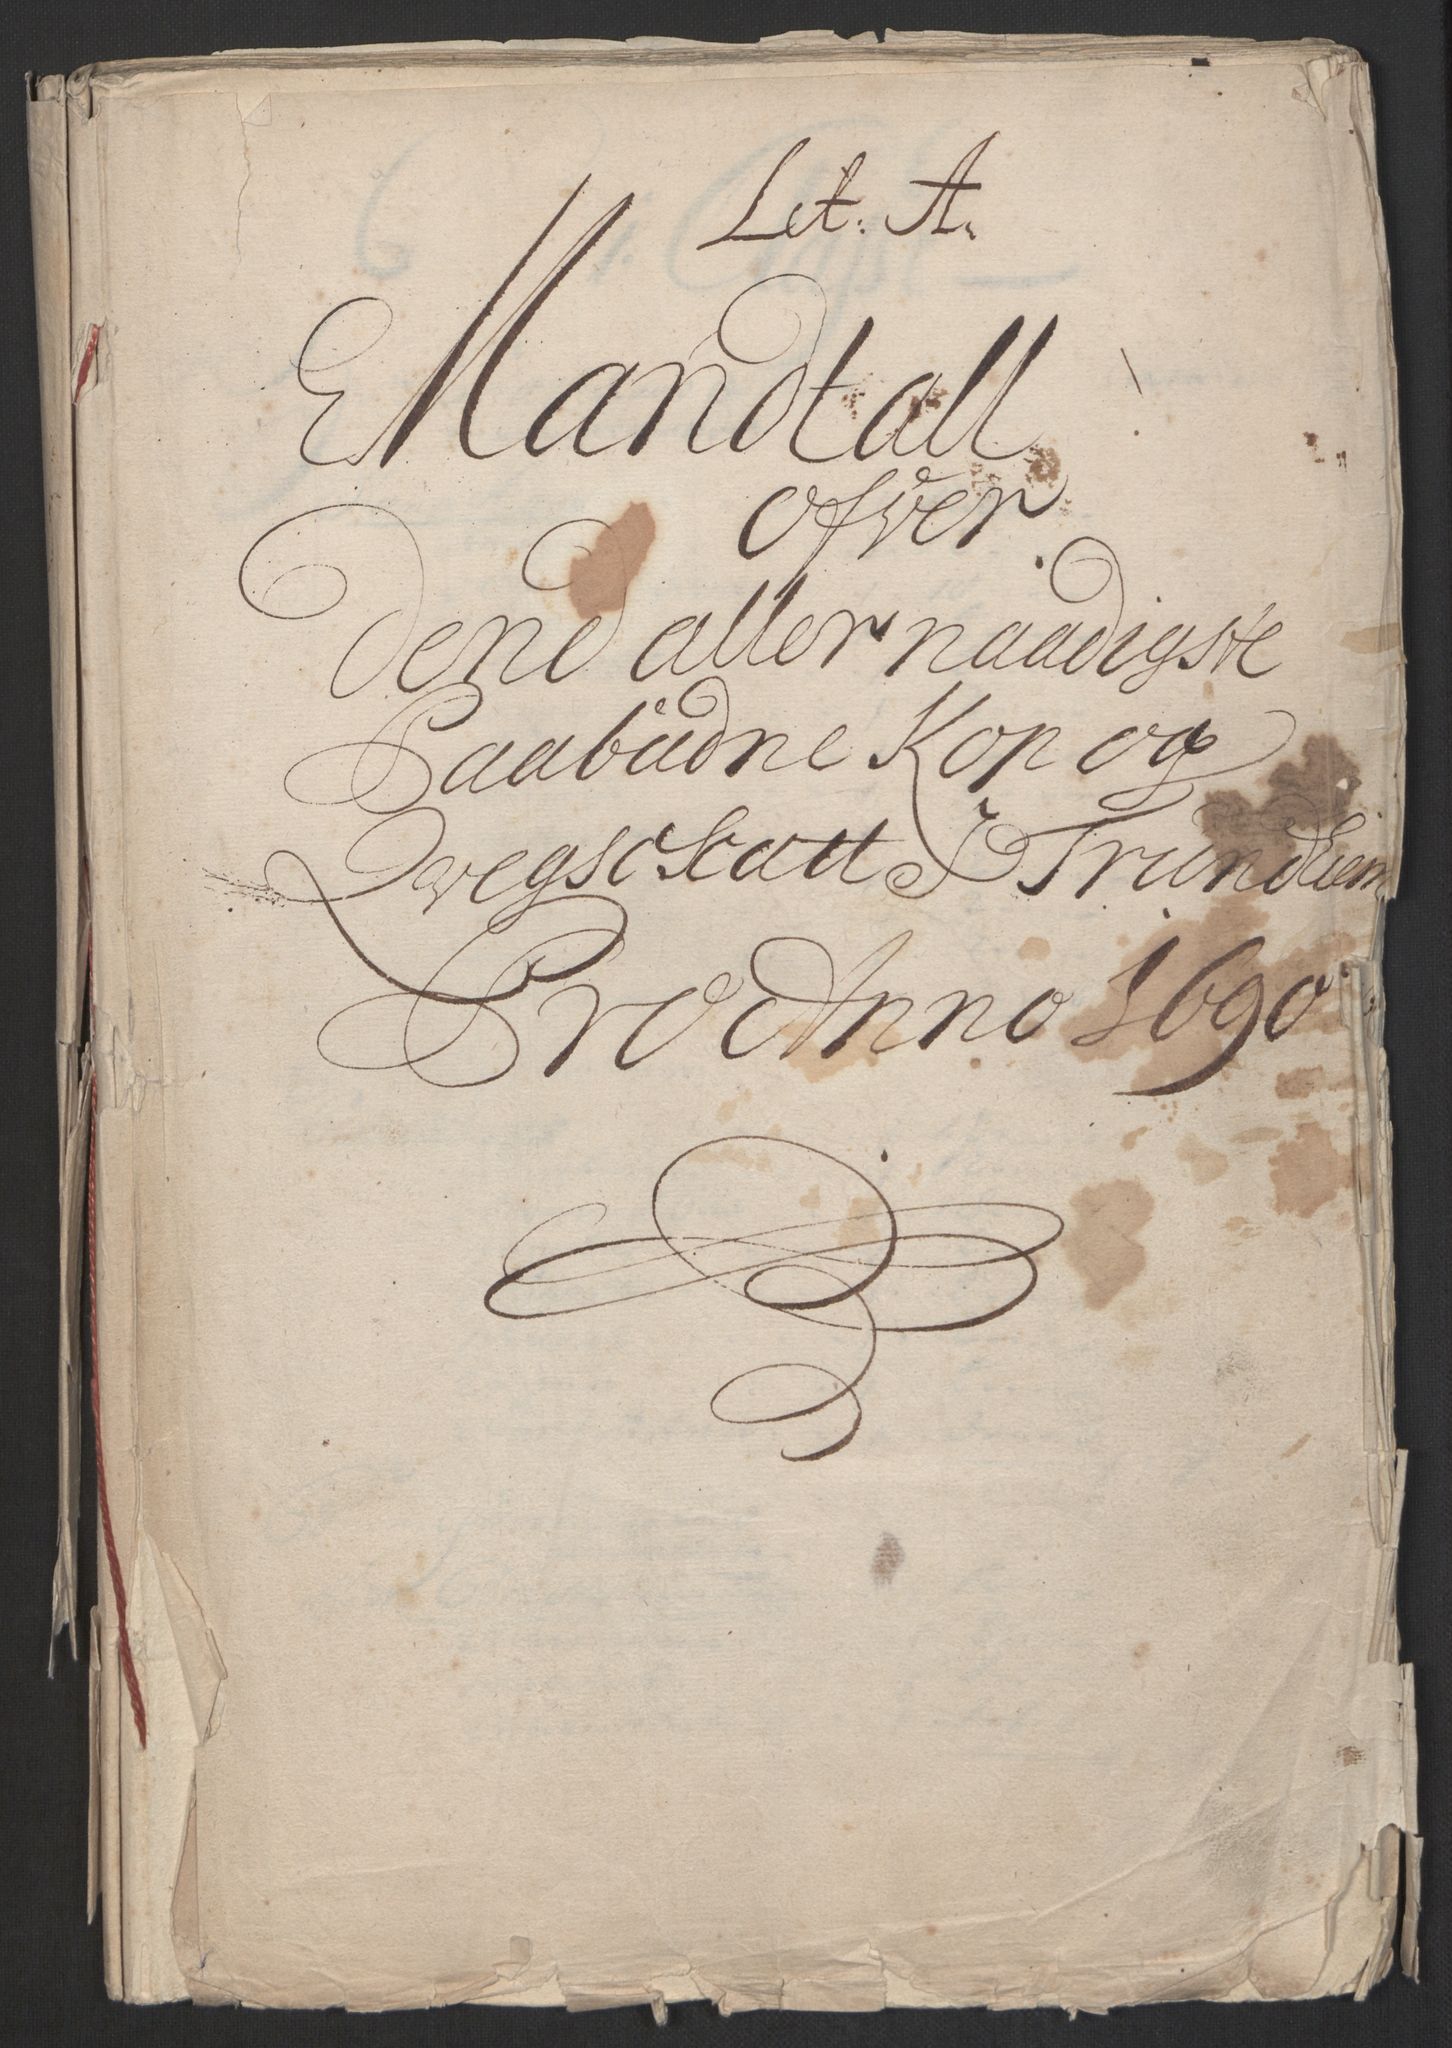 Let. A.
Mandtall
ofver
dend aller naadigste
Paabüdne Kop og
Qvegs Skatt I Trundhiem
Pro Anno 1690